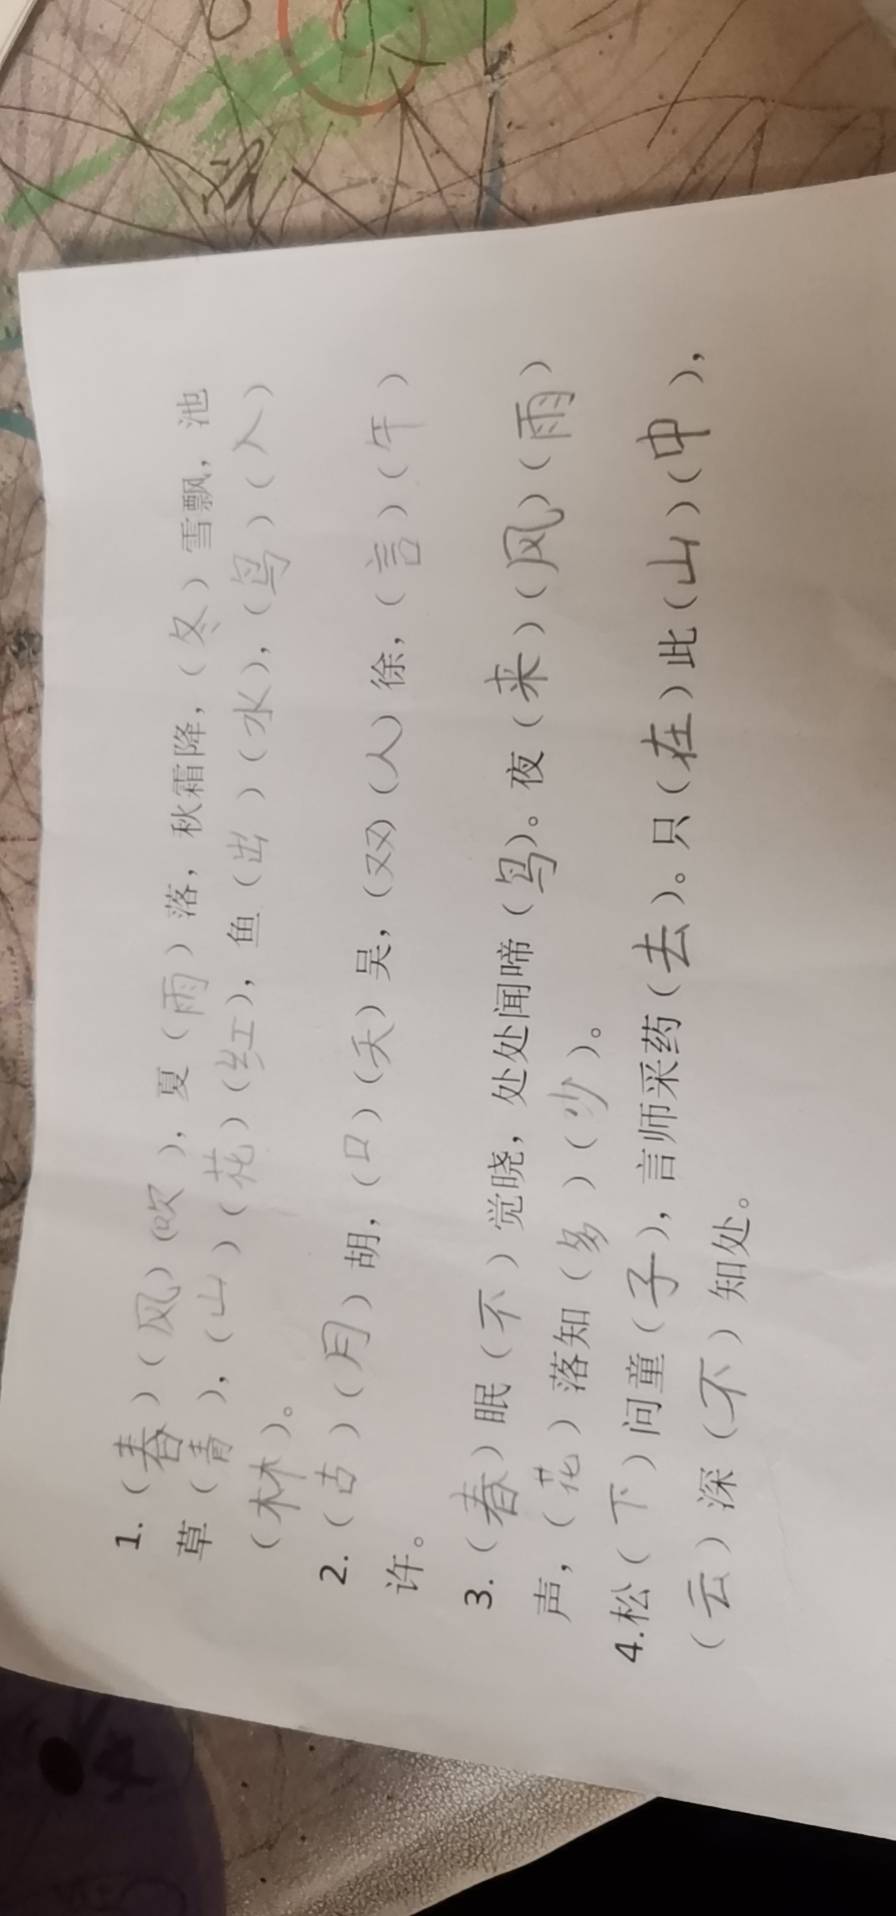 1.（春）（风）（吹），夏（雨）落，秋霜降，（冬）雪飘，池
草（青），（山）（花）（红），鱼（出）（水），（鸟）（入）
（林）。
2.（古）（月）胡，（口）（天）吴，（双）（人）徐，（言）（午）
许。
3.（春）眠（不）觉晓，处处闻啼（鸟）。夜（来）（风）（雨）
声，（花）落知（多）（少）。
4.松（下）问童（子），言师采药（去）。只（在）此（山）（中），
（云）深（不）知处。